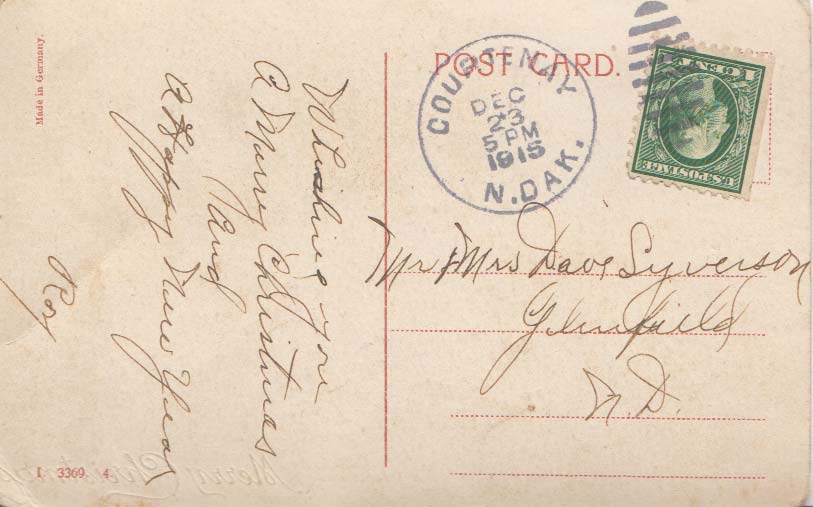 Made in Germany.
POST CARD.
COURTENAY
DEC
23
5 PM
1915
N. DAK.
1 CENT 1
U.S. POSTAGE
Whishing you
A Murry Christmas
And
A Happy New Year
Roy
Mr & Mrs Dave Syverson
Glenfield
N.D.
I. 3369. 4
Merry Christmas